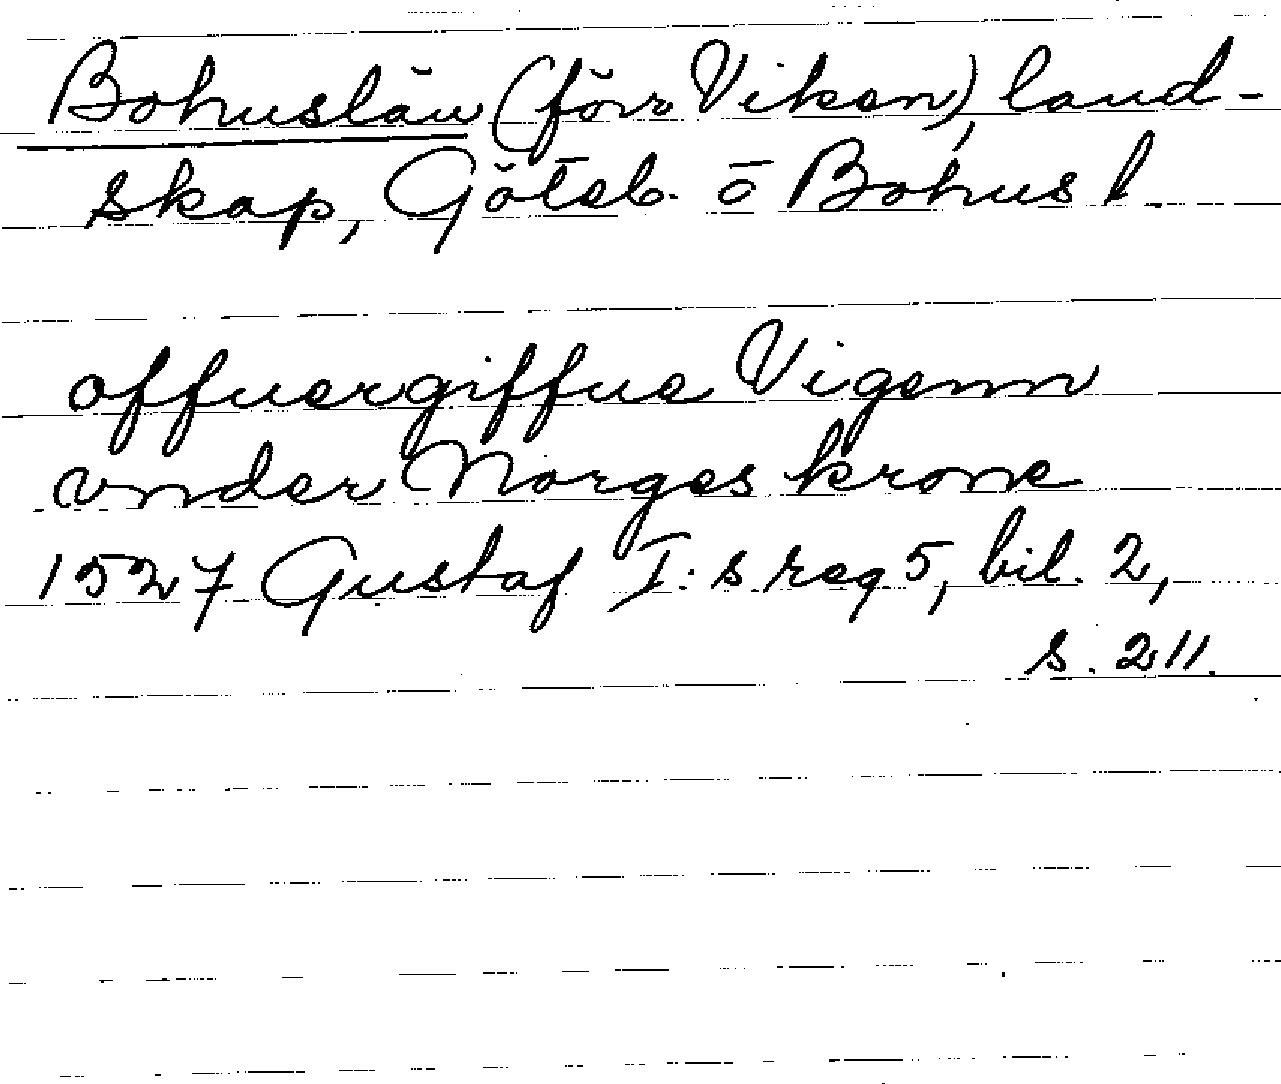 Bohuslän (förr Viken), land-
skap, Göteb. o Bohus l.
offuergiffue Vigenn
vnder Norges krone
1527 Gustaf I:s reg 5, bil. 2,
s. 211.